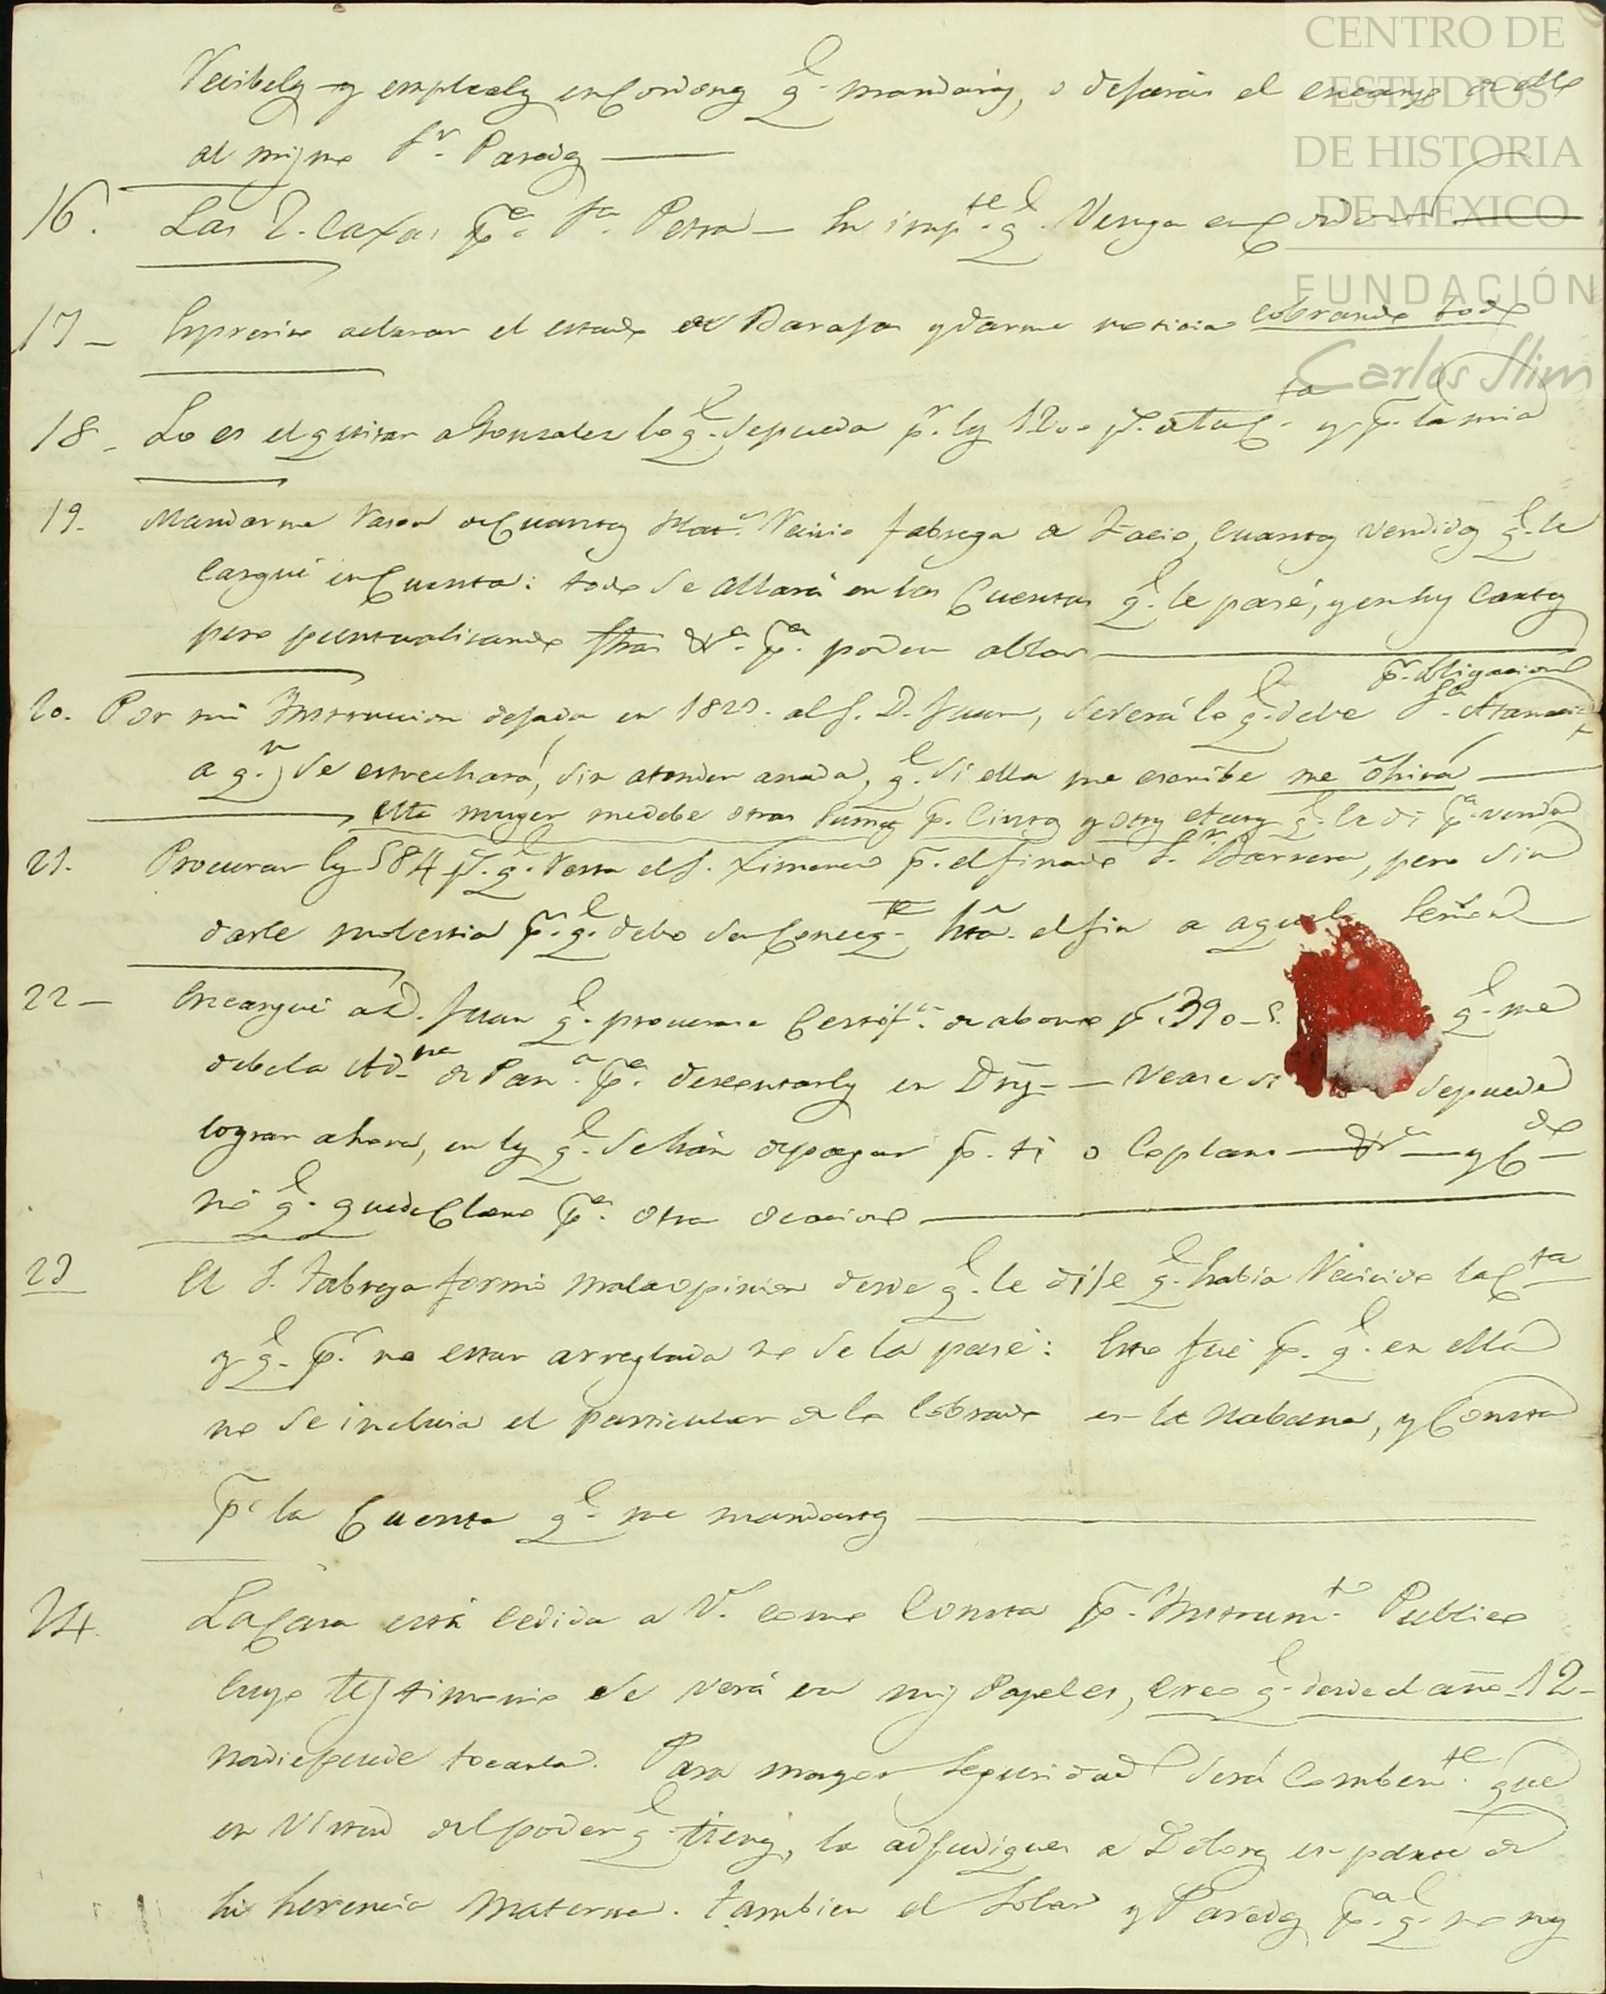 CENTRO DE
ESTUDIOS
DE HISTORIA
DE MEXICO
FUNDACIÓN
Carlos Slim
Recibelos y emplealos en Cordones q.e mandarás, o dejarás el encargo de ello
al mismo S.r Paredes
16. Las 2. Caxas p.a S.ta Petra su imp.te q.e Venga en
17 Es preciso aclarar el estado de Baraja y darme noticia cobrando todo
18 Lo es el quitar a Gonzalez lo q.e se pueda p.r los 1200 p.s a tu C.ta y p.r la mia
19. Mandarme razon de Cuantos Recivio Fabrega de Facio, Cuantos vendidos q.e le
Cargué en Cuenta: todo se allará en las Cuentas q.e le pasé, y en sus Cartas
pero puntualisando p.a poder allar
p.r obligacion
20. Por mi Instruccion dejada en 1823. al S. D. Juan, se verá lo q.e debe S.a Atanacia
a q.n se estrechará, sin atender a nada, q.e si ella me escribe me ohirá
esta muger me debe otras sumas p.r Cintas y otros q.e le di p.a vender
21. Procurar los 584 p.s q.e resta el S. Ximenes p.r el finado S.r Barrera, pero sin
darle molestia p.r q.e debo ser hta. el fin a aquel Señor
22 Encargué a D. Juan q.e procurase Certif.n de abono p.r 390 q.e me
debe la Ad.na de Pan.a p.a descontarlos en Dros Vease si se puede
lograr ahora, en los q.e se hán de pagar p.r ti o Coplano y C
no q.e quede Claro p.a otra ocacion
23 El S. Fabrega formó mala opinion desde q.e le dije q.e habia Recivido la C.ta
y q.e p.r no estar arreglada no se la pasé: Esto fué p.r q.e en ella
no se incluia el particular de lo Cobrado en la Habana, y Consta
p.r la Cuenta q.e me mandastes
24. La Casa está cedida a V. como Consta p.r Instrum.to Publico
cuyo testimonio se verá en mis Papeles, creo q.e desde el año 12
nadie puede tocarla. Para mayor seguridad será Comben.te que
en virtud del poder q.e tienes, la adjudiques a Dolores en parte de
su herencia Materna. Tambien el Solar y Paredes p.a q.e no